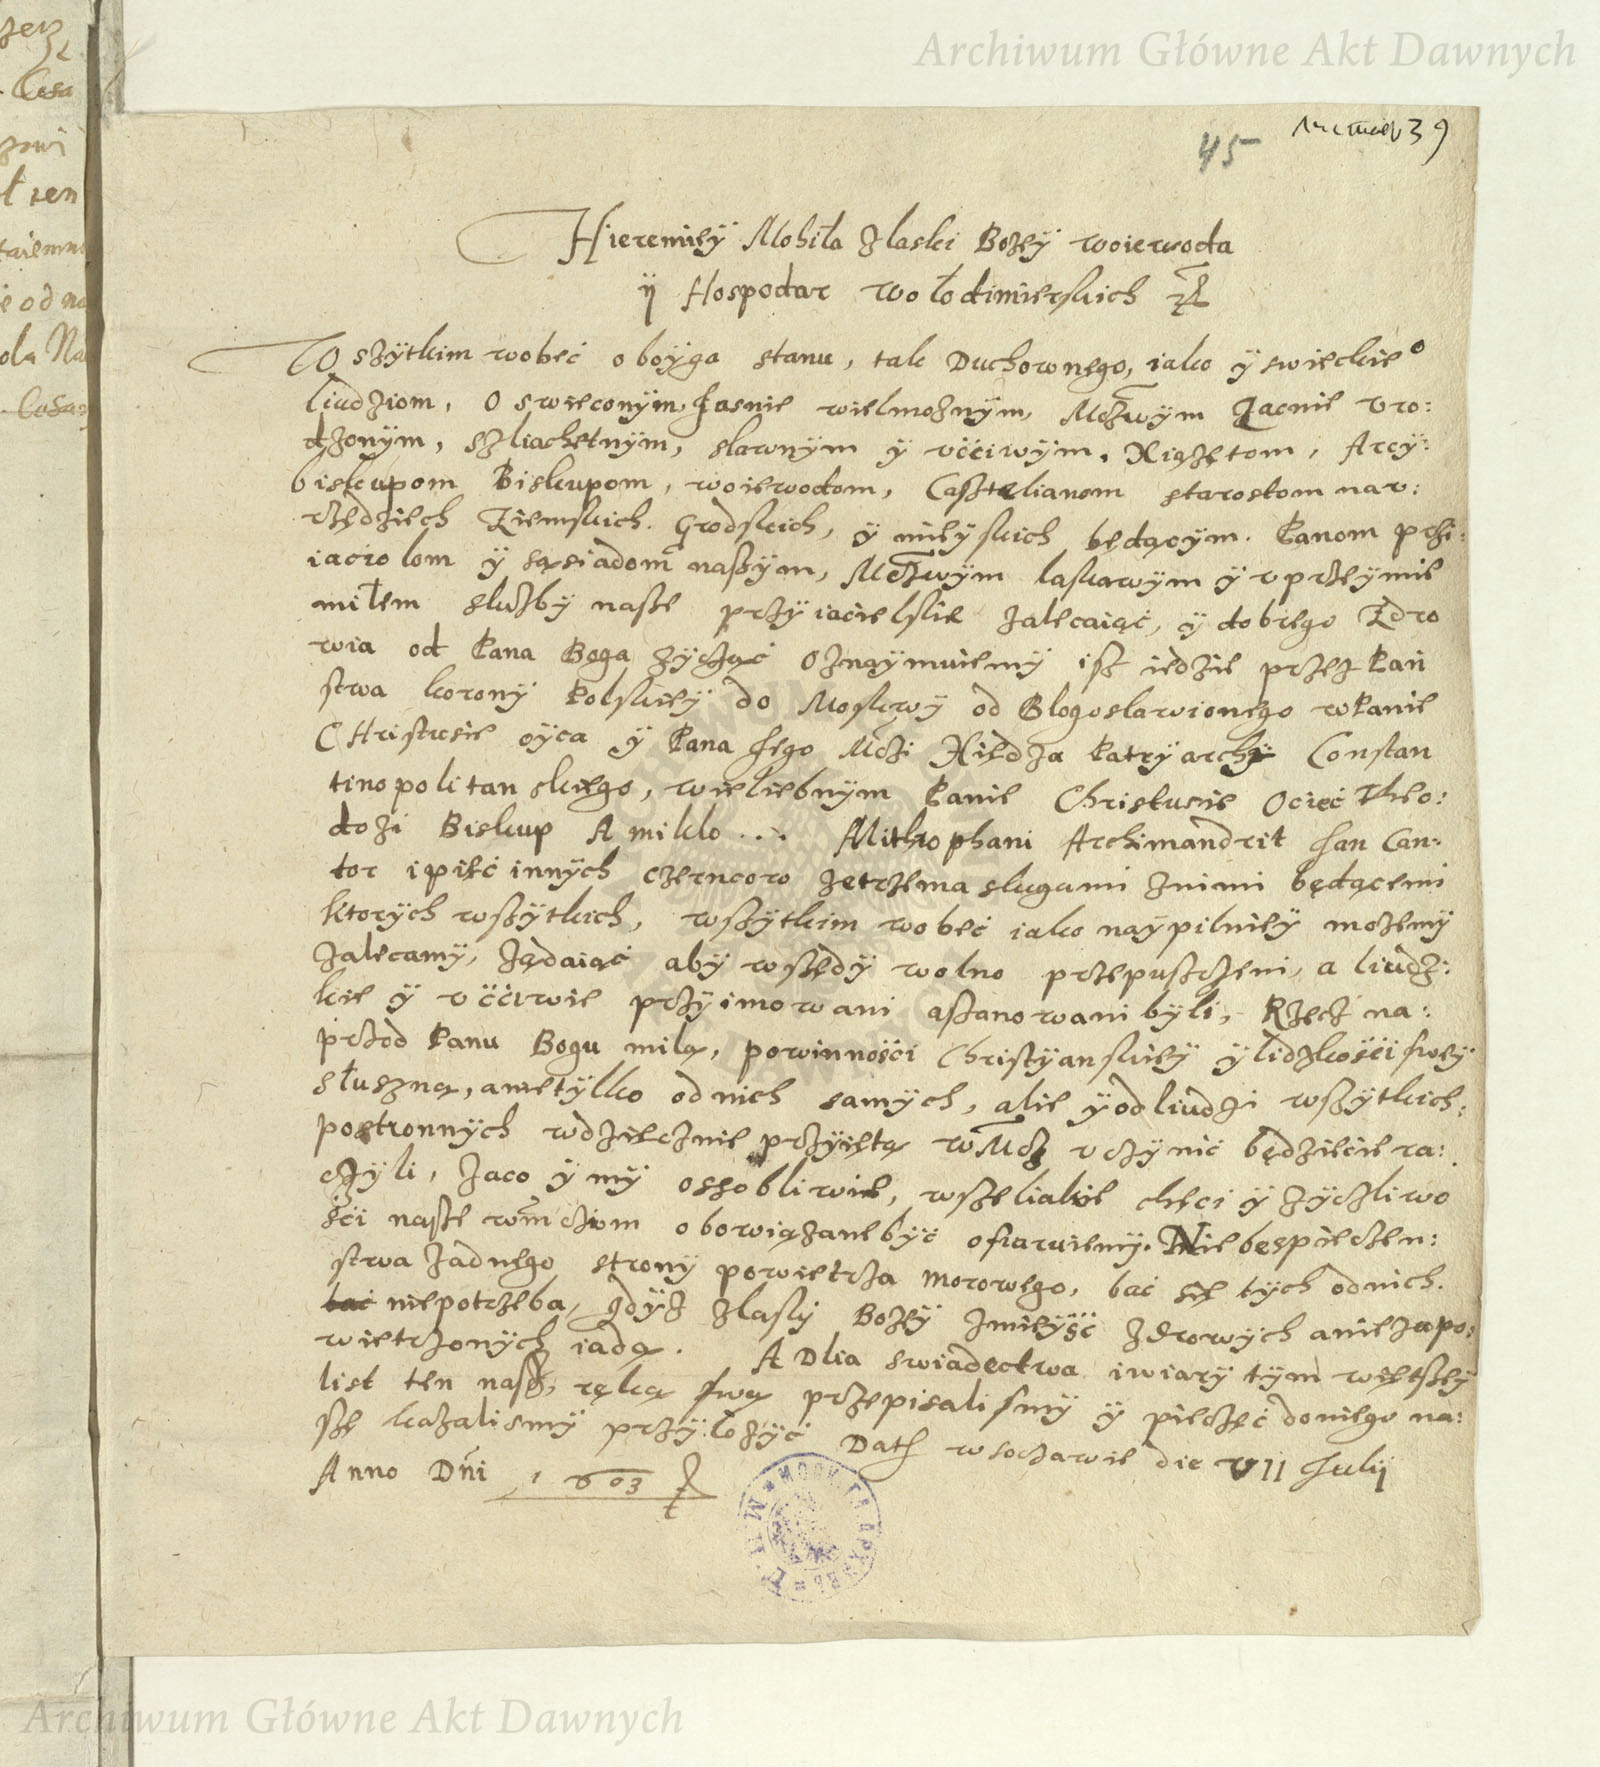 Archiwum Główne Akt Dawnych
45
39
Hieremiey Mohiła z łaski Bożey woiewoda
ÿ Hospodar wołodimierskich
W szÿtkim wobeć oboÿga stanu, tak Duchownego, iako ÿ swieckieº
liudziom, Oswieconÿm, Jasnie wielmożnÿm, Mczwÿm Zacnie vro:
dzonÿm, szliachetnÿm, slawnÿm ÿ vććiwÿm, Xiążętom, Arcÿ:
biskupom Biskupom, woiewodom, Casztelianom starostom na v:
rzędziech Ziemskich. Grodskich, ÿ mieÿskich będącÿm. Panom przi:
iaciolom ÿ sąsiadom naszÿm, Mczwÿm laskawÿm ÿ vprzeÿmie
miłem służbÿ nasze przÿiacielskie zalecaiąć, ÿ dobrego Zdro
wia od Pana Boga życząć Oznaÿmuiemÿ isz iedzie przez Pań
stwa koronÿ Polskieÿ do Moskwÿ od Blogoslawionego w Panie
CHristusie oÿca ÿ Pana Jego Mczi Xiędza Patrÿarchÿ Constan
tinopolitanskiego, wieliebnÿm Panie Christusie Ociec Theo:
dozi Biskup Amiklo... Mithrophani Archimandrit Jan Can:
tor i pieć innÿch czerncow ze trzema slugami z nimi będącemi
ktorÿch wszÿtkich, wszÿtkim wobeć iako naÿpilnieÿ możemÿ
zalecamÿ, żądaiąć abÿ wszędÿ wolno przepuszczeni, a liudz:
kie ÿ vććiwie przÿimowani a szanowani bÿli, Rzecz na:
przod Panu Bogu milą, powinnośći Christÿanskieÿ ÿ lidzkośći sweÿ
słuszną, a nie tÿlko od nich samÿch, alie ÿ od liudzi wszÿtkich:
postronnÿch wdzięcznie przÿiętą w Mcz vczÿnić będziecie ra:
czÿli, Jaco ÿ mÿ ossobliwie, wszeliakie chęci ÿ życzliwo
śći nasze wmcziom obowiązane bÿć ofiaruiemÿ. Niebespieczen:
stwa żadnego stronÿ powietrza morowego, bać się tÿch od nich.
bać niepotrzeba, gdÿż z łaskÿ Bożeÿ z mieÿść zdrowÿch a nie zapo:
wietrzonÿch iadą. A Dlia swiadectwa i wiarÿ tÿm więtszeÿ
list ten nasz, ręką swą przepisalismÿ ÿ pieczęć do niego na:
szę kazalismÿ przÿłożÿć Dat w soczawie die VII Julÿ
Anno Dni 1603
Archiwum Główne Akt Dawnych